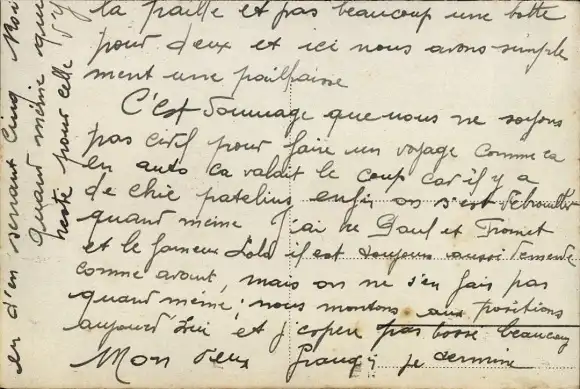 la paille et pas beaucoup une botte
pour deux et ici nous avons simple
ment une paillasse
C'est dommage que nous ne soyons
pas civil pour faire un voyage comme ca
en auto ca valait le coup car il y a
de chic patelins enfin on s'est debrouiller
quand meme J'ai vu Paul et
et le fameux Lolo il est toujours aussi demerde
comme avant, mais on ne s'en fais pas
quand même ; nous montons aux positions
aujourd'hui et j'espere pas bosse beaucoup
Mon vieux je termine
en d'en serrant cinq Mon
quand même que
reste pour celle d'y